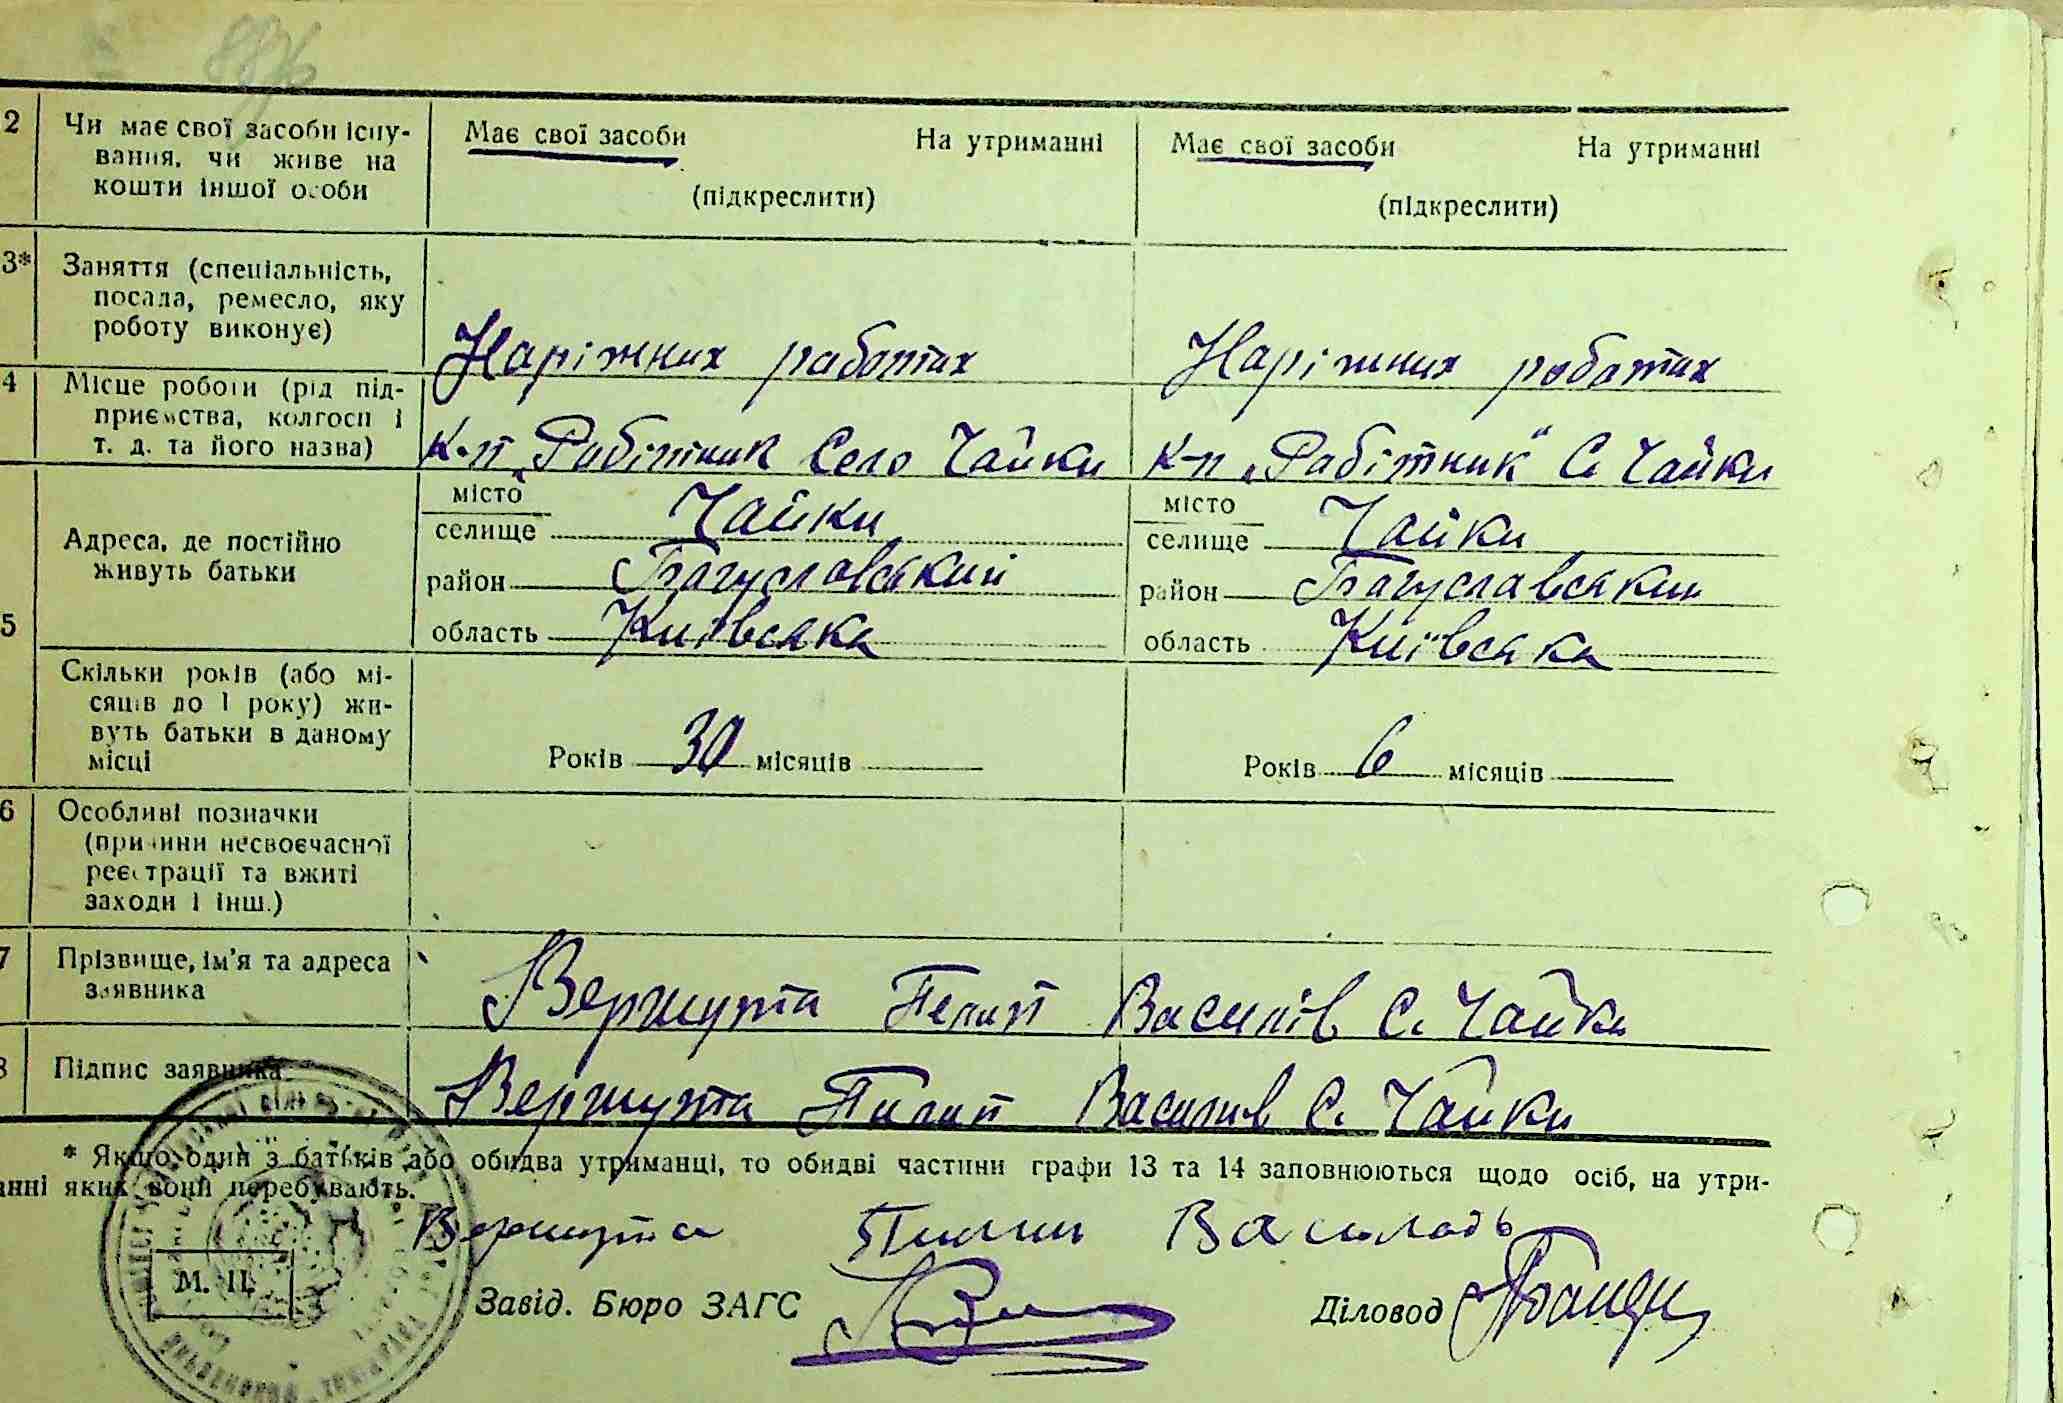 2 Чи має свої засоби існу-
вання, чи живе на
кошти іншої особи
Має свої засоби На утриманні
(підкреслити)
Має свої засоби На утриманні
(підкреслити)
3* Заняття (спеціальність,
посада, ремесло, яку
роботу виконує)
Наріжних работах
Наріжних роботах
4 Місце роботи (рід під-
приємства, колгосп і
т. д. та його назва)
К-п „Робітник Село Чайки
К-п „Робітник" С. Чайки
5 Адреса, де постійно
живуть батьки
місто
селище Чайки
район Богуславський
область Київська
місто
селище Чайки
район Богуславський
область Київська
Скільки років (або мі-
сяців до 1 року) жи-
вуть батьки в даному
місці
Років 30 місяців
Років 6 місяців
6 Особливі позначки
(причини несвоєчасної
реєстрації та вжиті
заходи і інш.)
7 Прізвище, ім'я та адреса
заявника
Вержута Пелип Василів С. Чайки
8 Підпис заявника
Вержута Пилип Василів С. Чайки
* Якщо один з батьків або обидва утриманці, то обидві частини графи 13 та 14 заповнюються щодо осіб, на утри-
анні яких вони перебувають.
Вержута Пилип
М. П.
Завід. Бюро ЗАГС
Діловод